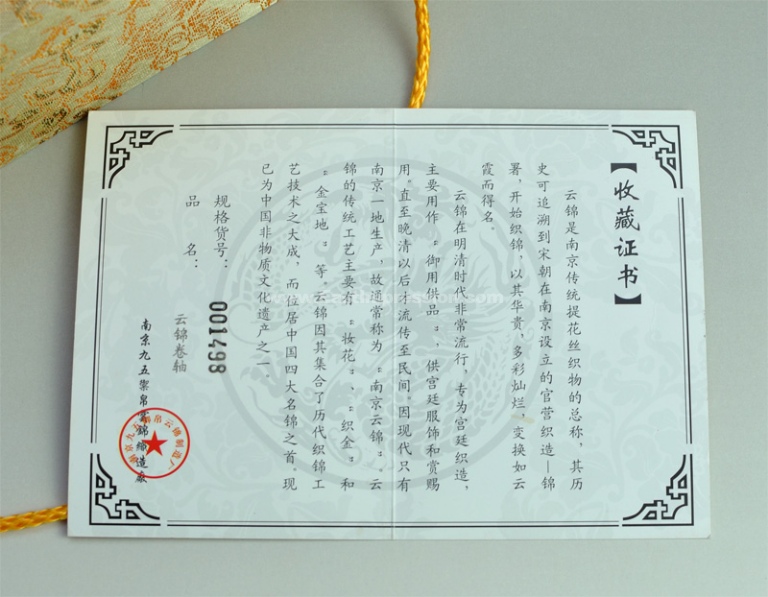 【收藏证书】
云锦是南京传统提花丝织物的总称，其历
史可追溯到宋朝在南京设立的官营织造—锦
署，开始织锦，以其华贵，多彩灿烂，变换如云
霞而得名。
云锦在明清时代非常流行，专为宫廷织造，
主要用作“御用供品”，供宫廷服饰和赏赐
用。直至晚清以后，流传至民间，因现代只有
南京一地生产，故通常称为“南京云锦”。云
锦的传统工艺主要有“妆花”、“织金”和
“金宝地”等云锦因其集合了历代织锦工
艺技术之大成，而位居中国四大名锦之首。现
已为中国非物质文化遗产之一
规格货号：001498
品名：云锦卷轴
南京九五禦帛雲錦織造廠